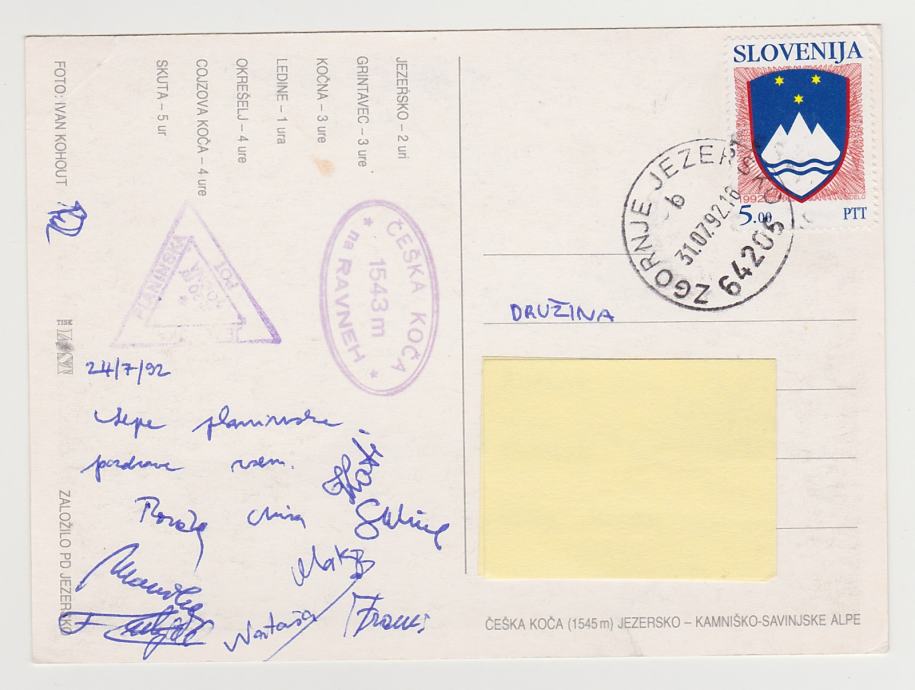 FOTO: IVAN KOHOUT
ZALOŽILO PD JEZERSKO
SKUTA – 5 ur
COJZOVA KOČA – 4 ure
OKREŠELJ – 4 ure
LEDINE – 1 ura
KOČNA – 3 ure
GRINTAVEC – 3 ure
JEZERSKO – 2 uri
PLANINSKA
POT
ČEŠKA KOČA
1543 m
* na RAVNEH *
24/7/92
Lepe planinske
pozdrave vsem.
Nataša
Franci
SLOVENIJA
1992
5.00 PTT
ZGORNJE JEZERSKO
b
31.07.92.18
64206
DRUŽINA
ČEŠKA KOČA (1545 m) JEZERSKO – KAMNIŠKO-SAVINJSKE ALPE